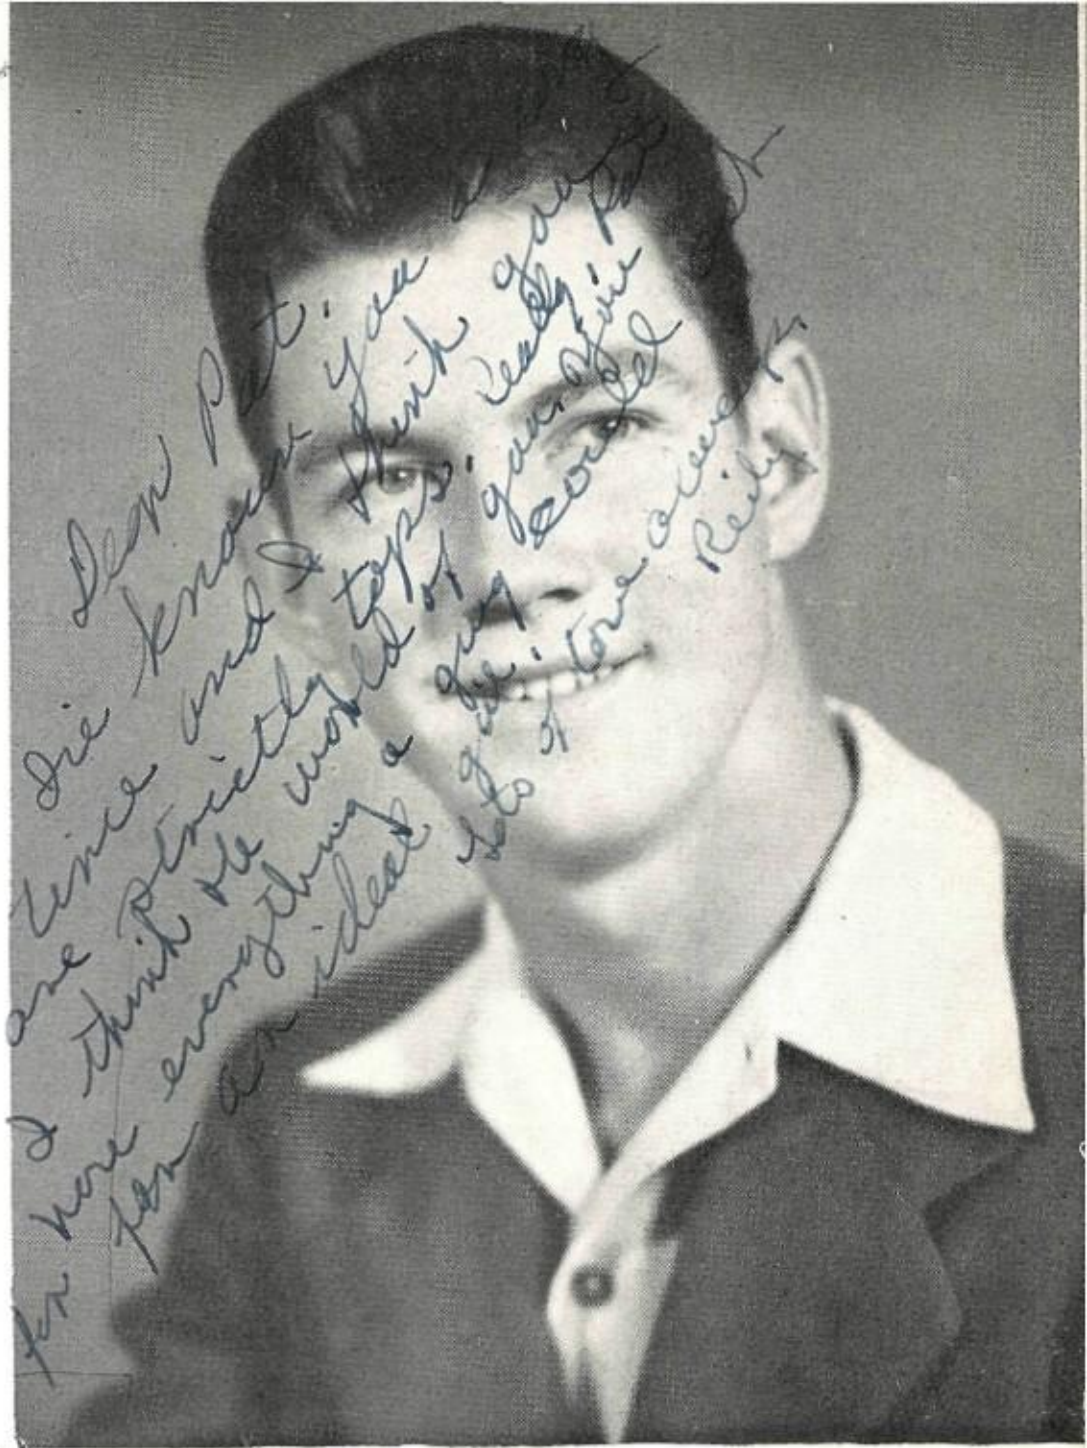 Dear Pat,
I've known you a long
time and I think you
are strictly tops. Really Pat
I think the world of you you
have everything a guy could
for an ideal gal.
Lots of love always
Reily